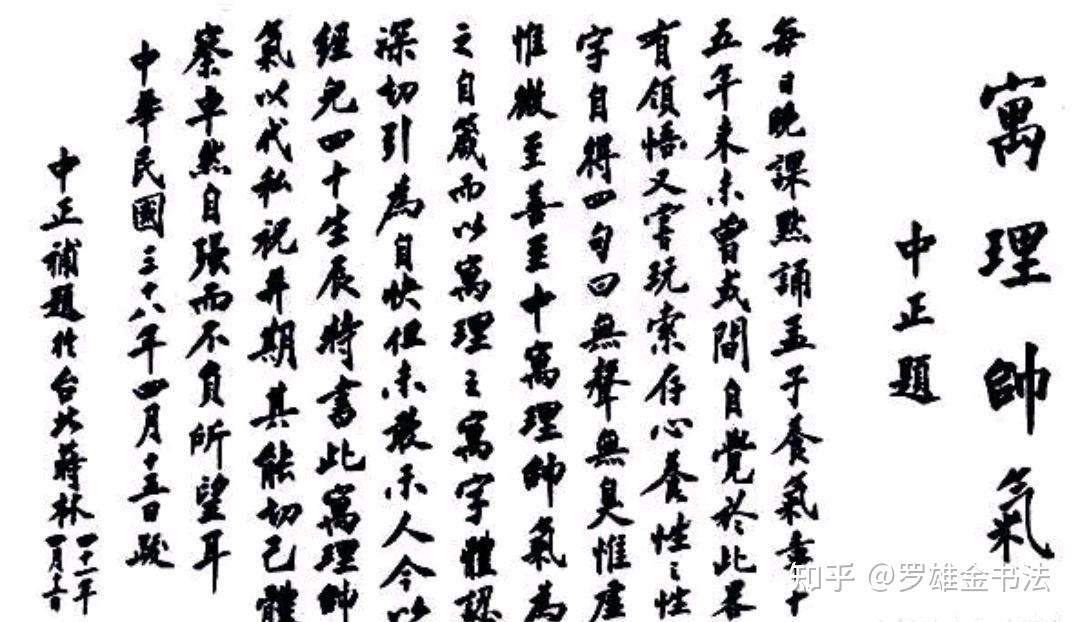 寓理帥氣
中正題
每日晚課默誦孟子養氣章十
五年來未曾或間自覺於此畧
有領悟又嘗玩索存心養性之性
字自得四句曰無聲無臭惟虛
惟微至善至中寓理帥氣為
之自箴而以寓理之寓字體認
深切引為自快但未敢示人今以
經兒四十生辰特書此寓理帥
氣以代私祝并期其能切己體
察卓然自強而不負所望耳
中華民國三十八年四月十五日跋
中正補題於台北蔣林
四十一年
一月
知乎 @罗雄金书法